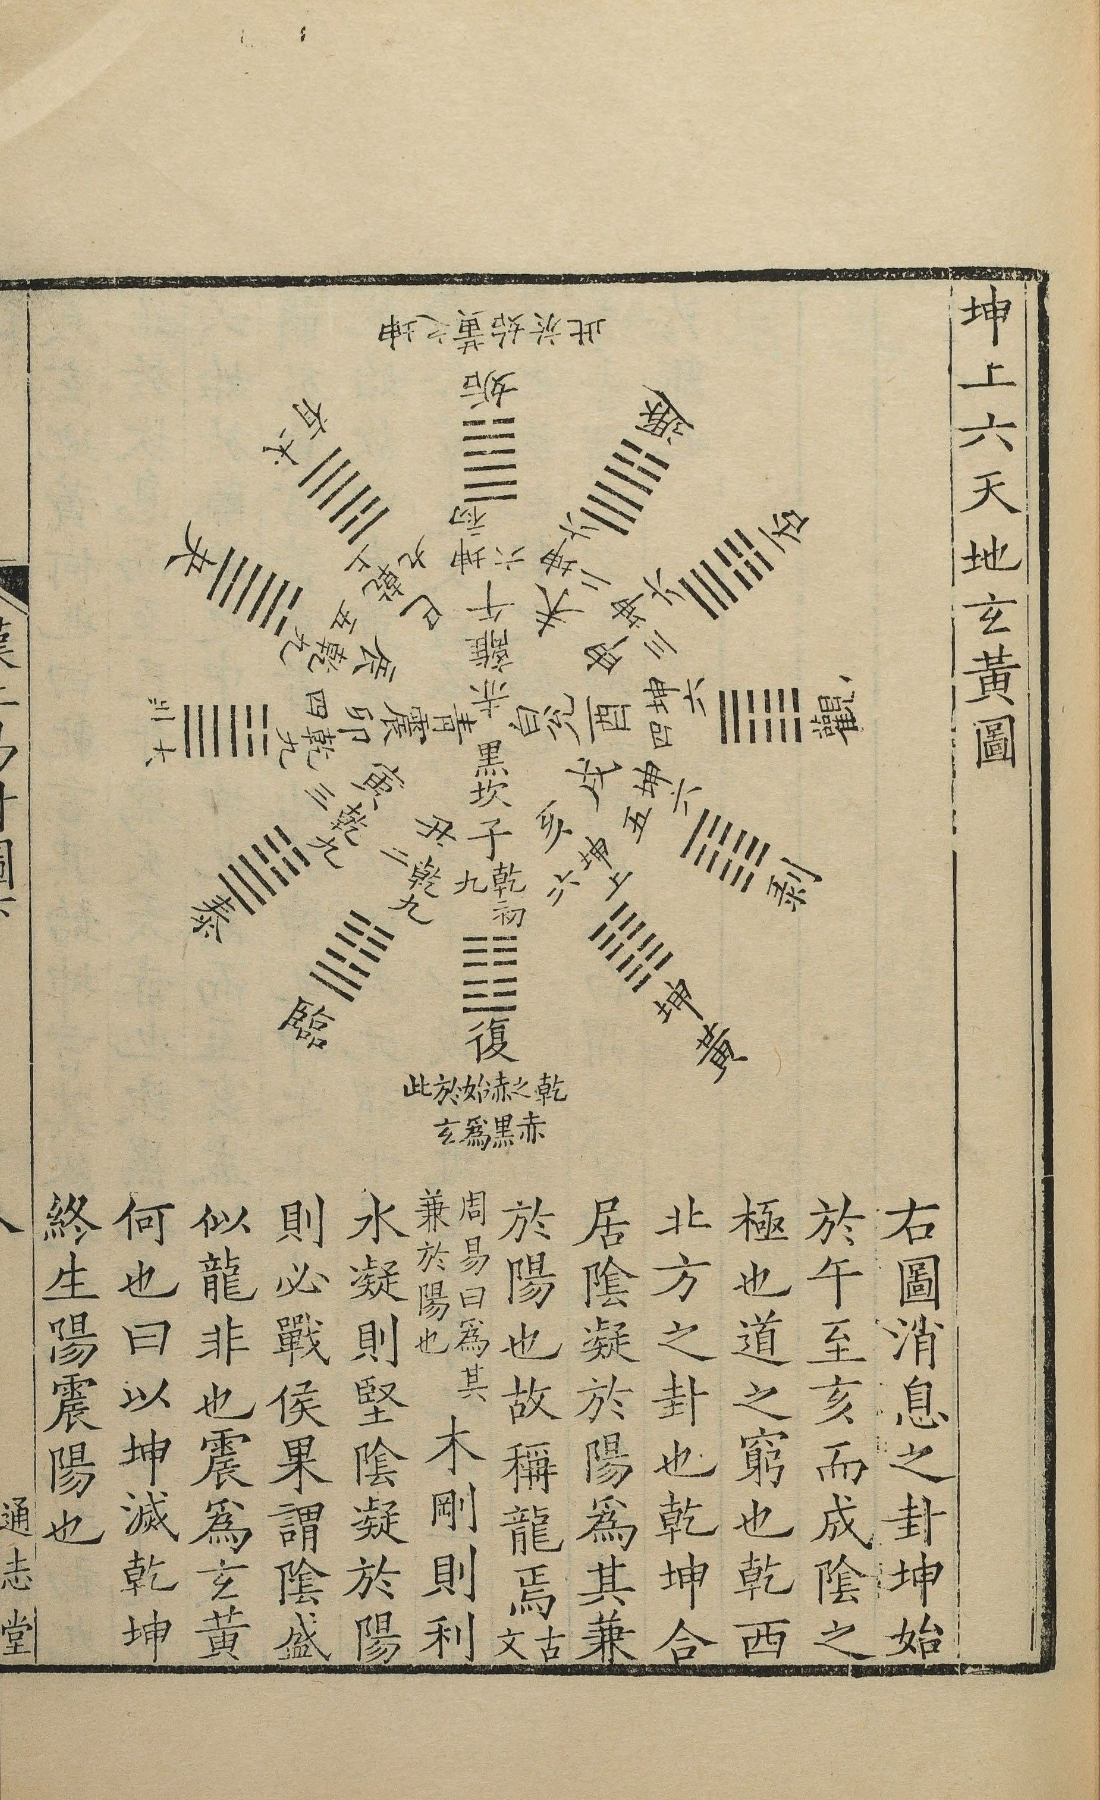 坤上六天地玄黃圖
此於始黃之坤
姤
坤初六
午
離
赤
遯
坤二六
未
否
坤三六
申
觀
坤四六
酉
兌
白
剝
坤五六
戌
黃
坤
坤上六
亥
復
乾初九
子
坎
黑
乾之赤始於此
赤黑爲玄
臨
乾九二
丑
泰
乾九三
寅
大壯
乾九四
卯
震
青
夬
乾九五
辰
乾上九
巳
右圖消息之卦坤始
於午至亥而成陰之
極也道之窮也乾西
北方之卦也乾坤合
居陰凝於陽爲其兼
於陽也故稱龍焉古文
周易曰爲其兼於陽也木剛則利
水凝則堅陰凝於陽
則必戰侯果謂陰盛
似龍非也震爲玄黃
何也曰以坤滅乾坤
終生陽震陽也
通志堂